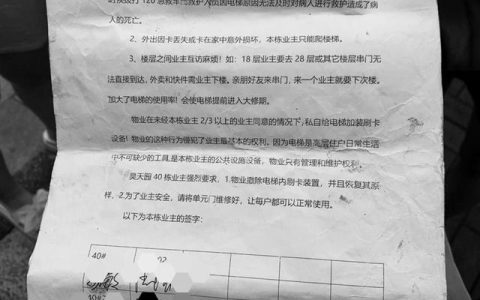 时拨打120急救车而救护人员因电梯原因无法及时对病人进行救护造成了病
人的死亡。
2、外出因卡丢失或卡在家中意外损坏，本栋业主只能爬楼梯。
3、楼层之间业主互访麻烦！如：18层业主要去28层或其它楼层串门无
法直接到达，外卖和快件需业主下楼。亲朋好友来串门，来一个业主就要下次楼。
加大了电梯的使用率！会使电梯提前进入大修期。
物业在未经本栋业主2/3以上的业主同意的情况下，私自给电梯加装刷卡
设备！物业的这种行为侵犯了业主最基本的权利。因为电梯是高层住户日常生活
中不可缺少的工具，是本栋业主的公共设施设备，物业只有管理和维护权利。
昊天园40栋业主强烈要求，1.物业撤除电梯内刷卡装置，并且恢复其原
样，2.为了业主安全，请将单元门维修好，让每户都可以正常使用。
以下为本栋业主的签字：
40#